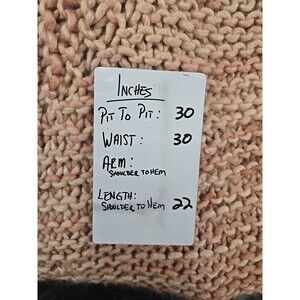 INCHES
PIT TO PIT: 30
WAIST: 30
ARM:
SHOULDER TO HEM
LENGTH:
SHOULDER TO HEM 22